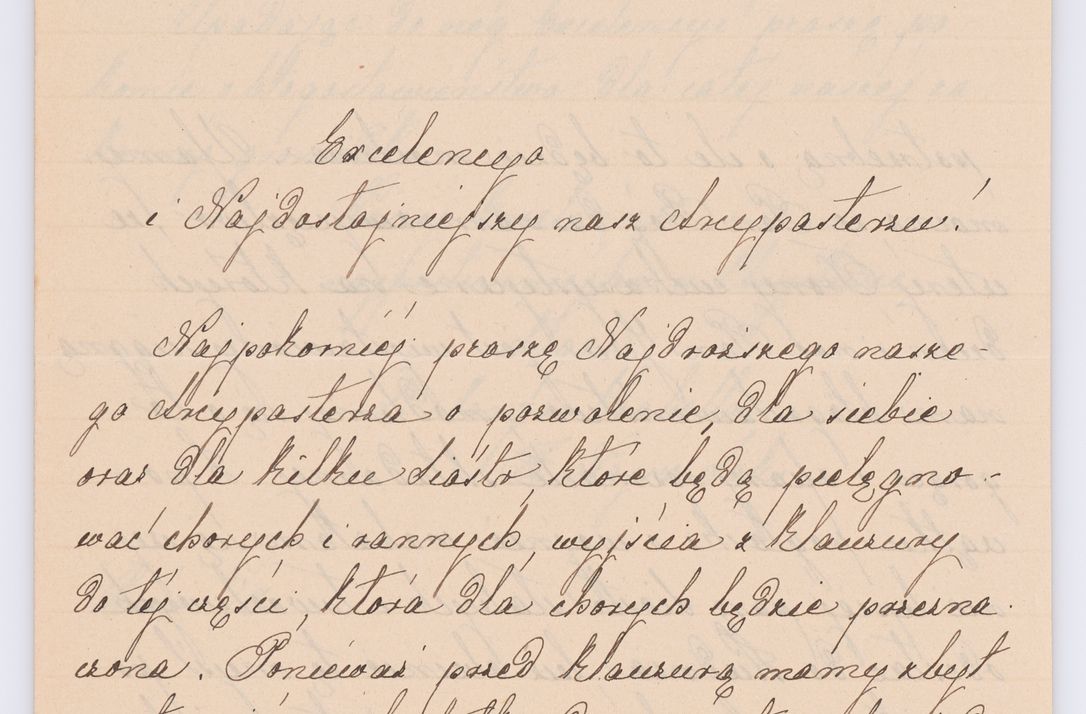 Excelencyo
i Najdostojniejszy nasz Arcypasterzu!
Najpokorniéj proszę Najdroższego nasze-
go Arcypasterza o pozwolenie, dla siebie
oraz dla kilku Sióstr, które będą pielęgno-
wać chorych i rannych, wyjścia z klauzury
do téj części, która dla chorych będzie przezna-
czona. Ponieważ przed klauzurą mamy zbyt